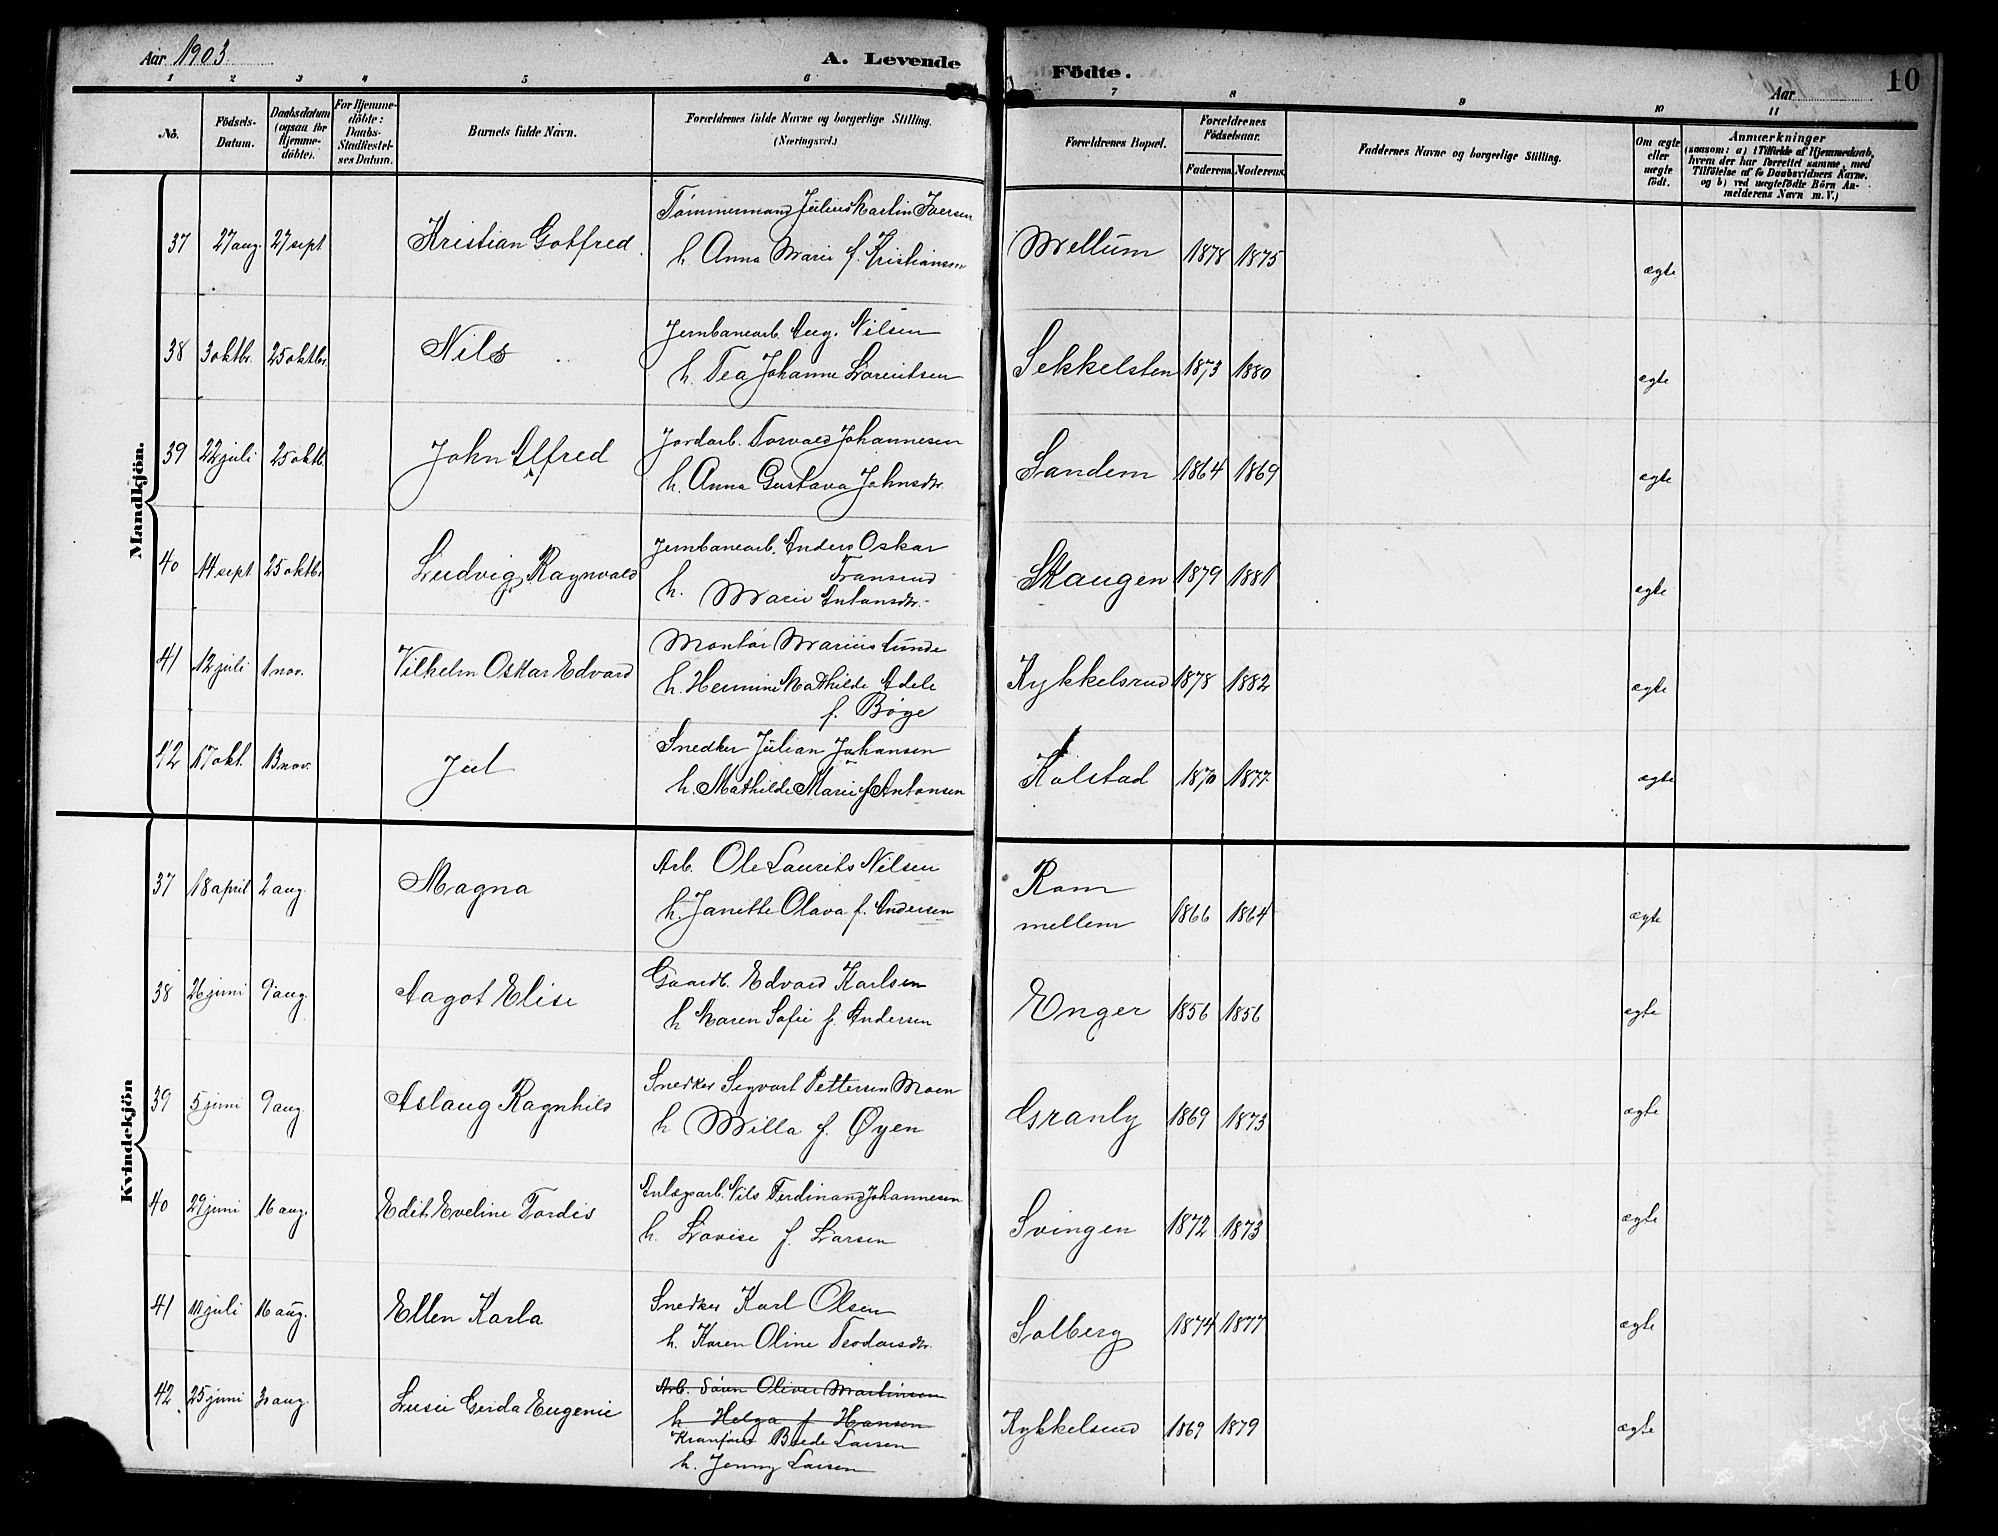 Aar 1903.
A. Levende Födte.
10
Aar
1 2 3 4 5 6 7 8 9 10 11
No.
Födsels-
Datum.
Daabsdatum
(ogsaa for
Hjemme-
döbte).
For Hjemme-
döbte:
Daabs-
Stadfæstel-
ses Datum.
Barnets fulde Navn.
Forældrenes fulde Navne og borgerlige Stilling.
(Næringsvei.)
Forældrenes Bopæl.
Forældrenes
Födselsaar.
Faderens. Moderens.
Faddernes Navne og borgerlige Stilling.
Om ægte
eller
uægte
födt.
Anmærkninger
(saasom: a) i Tilfælde af Hjemmedaab,
hvem der har forrettet samme, med
Tilföielse af to Daabsvidners Navne,
og b) ved uægtefödte Börn An-
melderens Navn m. V.)
Mandkjön.
37 27 aug. 27 sept Kristian Gotfred Tömmermand Julius Martin Iversen
h. Anna Marie f. Kristiansen Mellum 1878 1875 ægte
38 3 oktbr. 25 oktbr. Nils Jernbanearb. Aug. Nilsen
h. Tea Johanne Lorentsen Sekkelsten 1873 1880 ægte
39 22 juli 25 oktb. John Alfred Jordarb. Torvald Johannesen
h. Anna Gustava Johnsdtr. Sandem 1864 1869 ægte
40 14 sept 25 oktbr Ludvig Ragnvald Jernbanearb. Anders Oskar
Fransrud
h. Marie Antonsdtr. Skaugen 1879 1881 ægte
41 12 juli 1 nov. Vilhelm Oskar Edvard Montör Marius Lunde
h. Hermine Mathilde Adele
f. Böge Kykkelsrud 1878 1882 ægte
42 17 okt. 13 nov. Juel Snedker Julian Johansen
h. Mathilde Marie f. Antonsen Kolstad 1870 1877 ægte
Kvindekjön
37 18 april 2 aug. Magna Arb. Ole Laurits Nilsen
h. Janette Olava f. Andersen Rom
mellem 1866 1864 ægte
38 26 juni 9 aug. Aagot Elise Gaardb. Edvard Karlsen
h Maren Sofie f. Andersen Enger 1856 1856 ægte
39 5 juni 9 aug. Aslaug Ragnhild Snedker Sigvart Pettersen Moen
h Milla f. Øyen Granly 1869 1873 ægte
40 29 juni 16 aug. Edit Eveline Tordis Anlægsarb. Nils Ferdinand Johannesen
h. Lovise f. Larsen Svingen 1872 1873 ægte
41 11 juli 16 aug. Ellen Karla Snedker Karl Olsen
h. Karen Oline Teodorsdtr. Solberg 1874 1877 ægte
42 25 juni 30 aug. Lusie Gerda Eugenie Arb. Sören Oliver Martinsen
h Helga f Hansen
Kranförer Larsen
h. Jenny Larsen Kykkelsrud 1869 1879 ægte